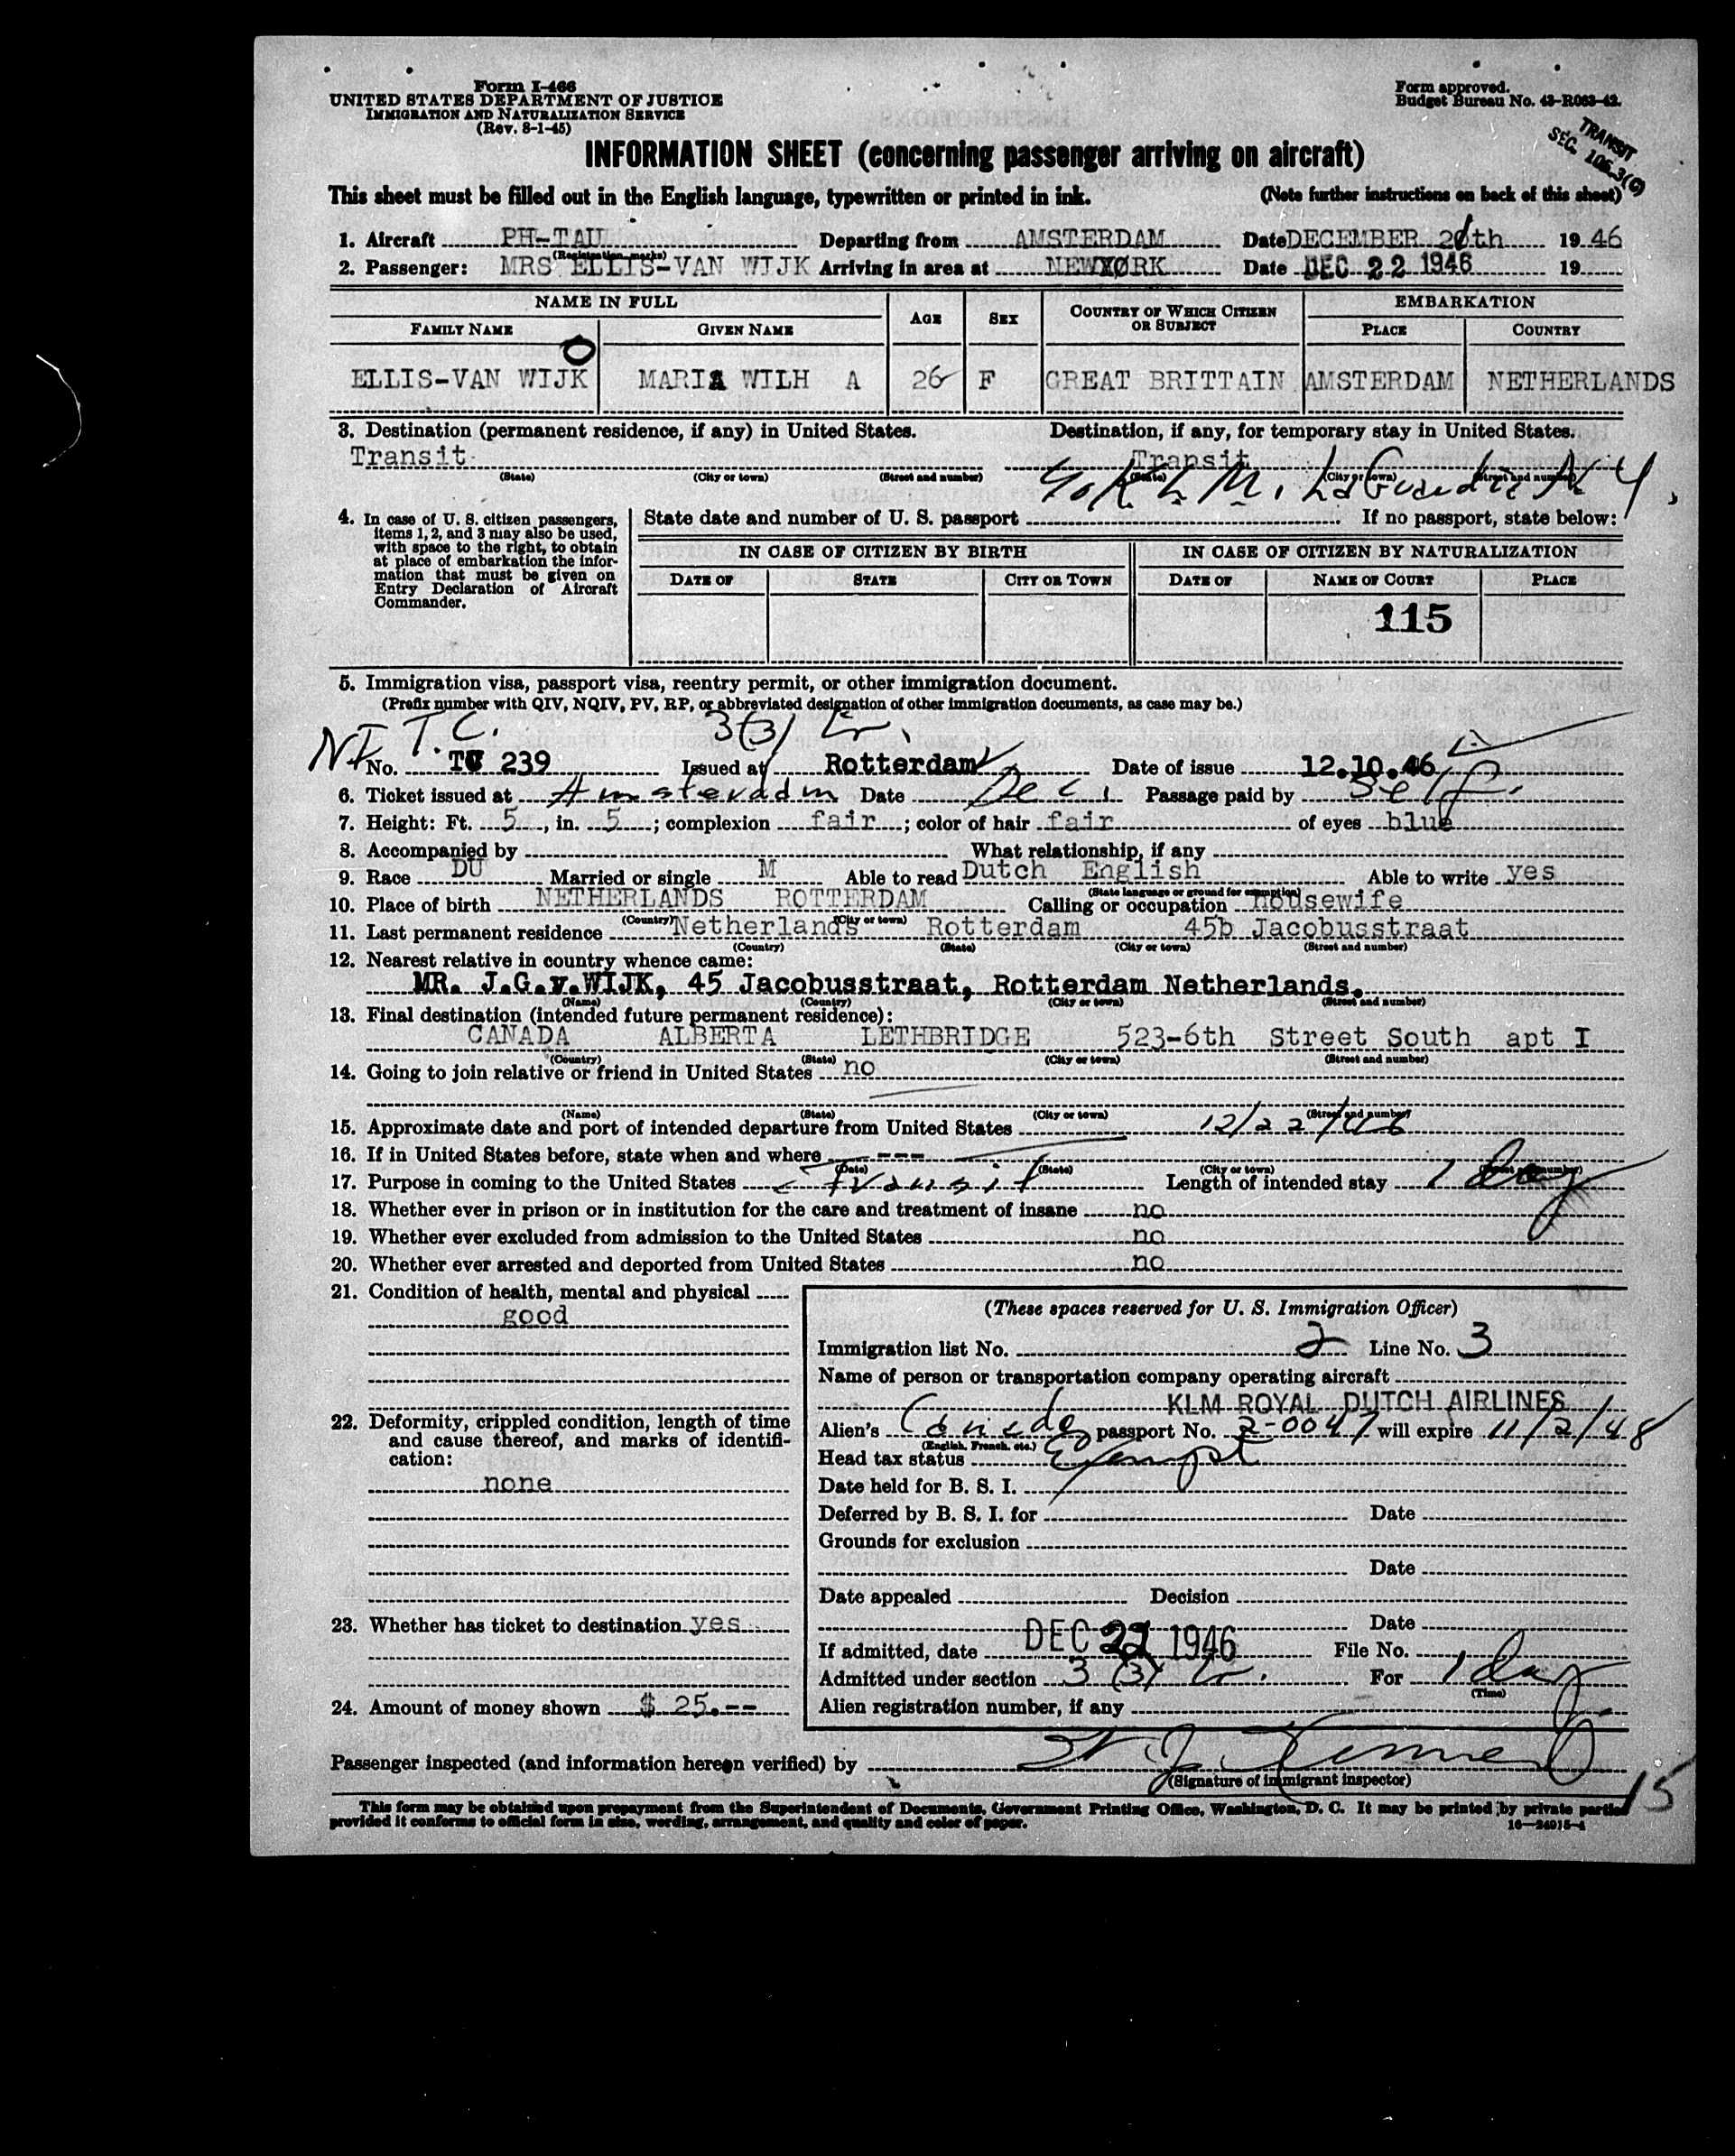 Form I-466
UNITED STATES DEPARTMENT OF JUSTICE
IMMIGRATION AND NATURALIZATION SERVICE
(Rev. 8-1-45)
Form approved.
Budget Bureau No. 43-R063-42.
TRANSIT
SEC. 105.3(C)
INFORMATION SHEET (concerning passenger arriving on aircraft)
This sheet must be filled out in the English language, typewritten or printed in ink. (Note further instructions on back of this sheet)
1. Aircraft PH-TAU Departing from AMSTERDAM Date DECEMBER th 1946
(Registration marks)
2. Passenger: MRS ELLIS-VAN WIJK Arriving in area at NEWYORK Date DEC 22 1946 19
NAME IN FULL AGE SEX COUNTRY OF WHICH CITIZEN OR SUBJECT EMBARKATION
FAMILY NAME GIVEN NAME PLACE COUNTRY
ELLIS-VAN WIJK MARIA WILH A 26 F GREAT BRITTAIN AMSTERDAM NETHERLANDS
3. Destination (permanent residence, if any) in United States. Destination, if any, for temporary stay in United States.
Transit Transit
(State) (City or town) (Street and number) (State) (City or town) (Street and number)
c/o K.L.M. LaGuardia N.Y.
4. In case of U. S. citizen passengers, items 1, 2, and 3 may also be used, with space to the right, to obtain at place of embarkation the information that must be given on Entry Declaration of Aircraft Commander.
State date and number of U. S. passport If no passport, state below:
IN CASE OF CITIZEN BY BIRTH IN CASE OF CITIZEN BY NATURALIZATION
DATE OF STATE CITY OR TOWN DATE OF NAME OF COURT PLACE
115
5. Immigration visa, passport visa, reentry permit, or other immigration document.
(Prefix number with QIV, NQIV, PV, RP, or abbreviated designation of other immigration documents, as case may be.)
T.C. 3(3)
No. TC 239 Issued at Rotterdam Date of issue 12.10.46
6. Ticket issued at Amsterdam Date Dec 1 Passage paid by Self.
7. Height: Ft. 5, in. 5; complexion fair; color of hair fair of eyes blue
8. Accompanied by What relationship, if any
9. Race DU Married or single M Able to read Dutch English Able to write yes
(State language or ground for exemption)
10. Place of birth NETHERLANDS ROTTERDAM Calling or occupation housewife
(Country) (City or town)
11. Last permanent residence Netherlands Rotterdam 45b Jacobusstraat
(Country) (State) (City or town) (Street and number)
12. Nearest relative in country whence came:
MR. J.G.v.WIJK, 45 Jacobusstraat, Rotterdam Netherlands.
(Name) (Country) (City or town) (Street and number)
13. Final destination (intended future permanent residence):
CANADA ALBERTA LETHBRIDGE 523-6th Street South apt I
(Country) (State) (City or town) (Street and number)
14. Going to join relative or friend in United States no
(Name) (State) (City or town) (Street and number)
15. Approximate date and port of intended departure from United States 12/22/46
16. If in United States before, state when and where ---
(Date) (State) (City or town) (Street and number)
17. Purpose in coming to the United States Transit Length of intended stay 1 day
18. Whether ever in prison or in institution for the care and treatment of insane no
19. Whether ever excluded from admission to the United States no
20. Whether ever arrested and deported from United States no
21. Condition of health, mental and physical
good
22. Deformity, crippled condition, length of time and cause thereof, and marks of identification:
none
23. Whether has ticket to destination yes
24. Amount of money shown $ 25.--
(These spaces reserved for U. S. Immigration Officer)
Immigration list No. 2 Line No. 3
Name of person or transportation company operating aircraft
KLM ROYAL DUTCH AIRLINES
Alien's Canada passport No. 2-0047 will expire 11/2/48
(English, French, etc.)
Head tax status Exempt
Date held for B. S. I.
Deferred by B. S. I. for Date
Grounds for exclusion
Date
Date appealed Decision
Date
If admitted, date DEC 22 1946 File No.
Admitted under section 3 (3) For 1 day
(Time)
Alien registration number, if any
Passenger inspected (and information hereon verified) by
(Signature of immigrant inspector)
15
This form may be obtained upon prepayment from the Superintendent of Documents, Government Printing Office, Washington, D. C. It may be printed by private parties
provided it conforms to official form in size, wording, arrangement, and quality and color of paper.
16—24015-4